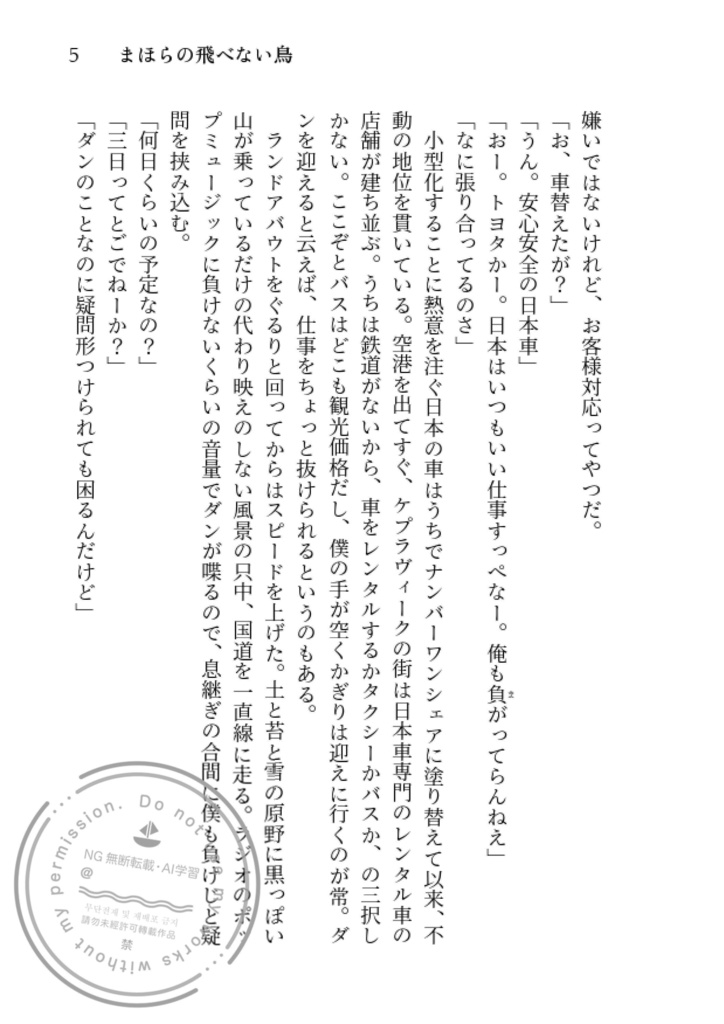 5　まほらの飛べない鳥
嫌いではないけれど、お客様対応ってやつだ。
「お、車替えたが？」
「うん。安心安全の日本車」
「おー。トヨタかー。日本はいつもいい仕事すっぺなー。俺も負がってらんねえ」
ま
「なに張り合ってるのさ」
　小型化することに熱意を注ぐ日本の車はうちでナンバーワンシェアに塗り替えて以来、不
動の地位を貫いている。空港を出てすぐ、ケプラヴィークの街は日本車専門のレンタル車の
店舗が建ち並ぶ。うちは鉄道がないから、車をレンタルするかタクシーかバスか、の三択し
かない。ここぞとバスはどこも観光価格だし、僕の手が空くかぎりは迎えに行くのが常。ダ
ンを迎えると云えば、仕事をちょっと抜けられるというのもある。
　ランドアバウトをぐるりと回ってからはスピードを上げた。土と苔と雪の原野に黒っぽい
山が乗っているだけの代わり映えのしない風景の只中、国道を一直線に走る。ラジオのポッ
プミュージックに負けないくらいの音量でダンが喋るので、息継ぎの合間に僕も負けじと疑
問を挟み込む。
「何日くらいの予定なの？」
「三日ってとごでねーか？」
「ダンのことなのに疑問形つけられても困るんだけど」
Do not
my
works without my permission.
NG 無断転載・AI学習
@
무단전재 및 재배포 금지
請勿未經許可轉載作品
禁